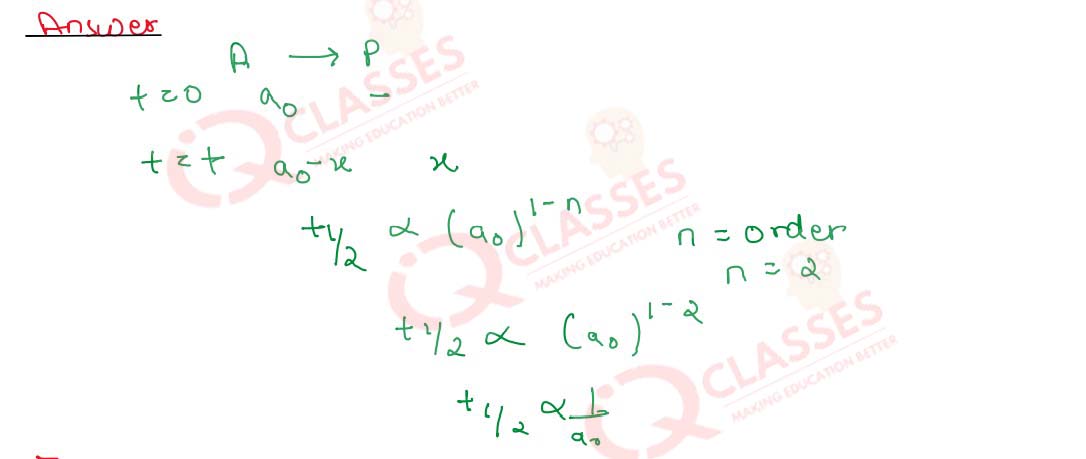 Answer
A ⟶ P
t=0 a₀ –
t=t a₀-x x
t1/2 ∝ (a₀)^1-n
n = order
n = 2
t1/2 ∝ (a₀)^1-2
t1/2 ∝ 1/a₀
IQ CLASSES
MAKING EDUCATION BETTER
IQ CLASSES
MAKING EDUCATION BETTER
IQ CLASSES
MAKING EDUCATION BETTER